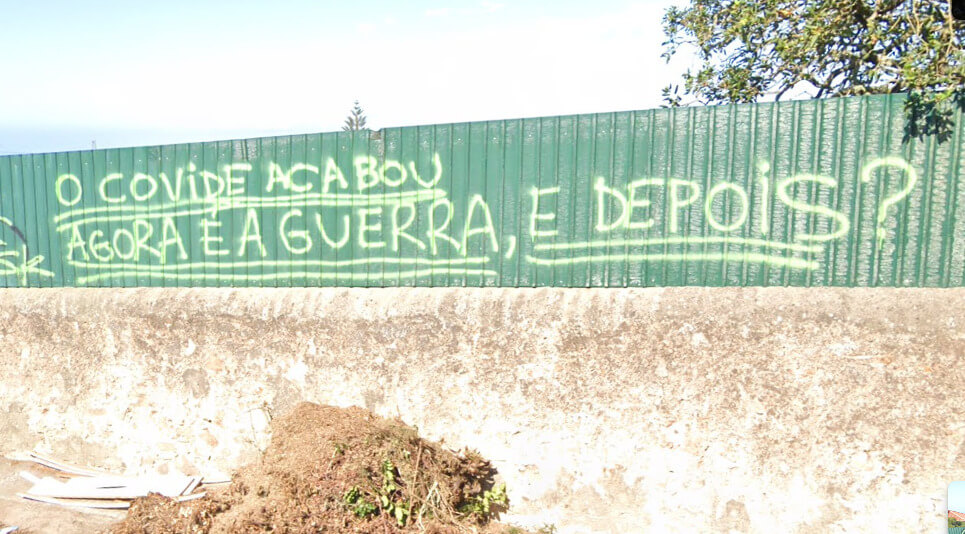 O COViDE ACABOU
AGORA É A GUERRA, E DEPOiS?